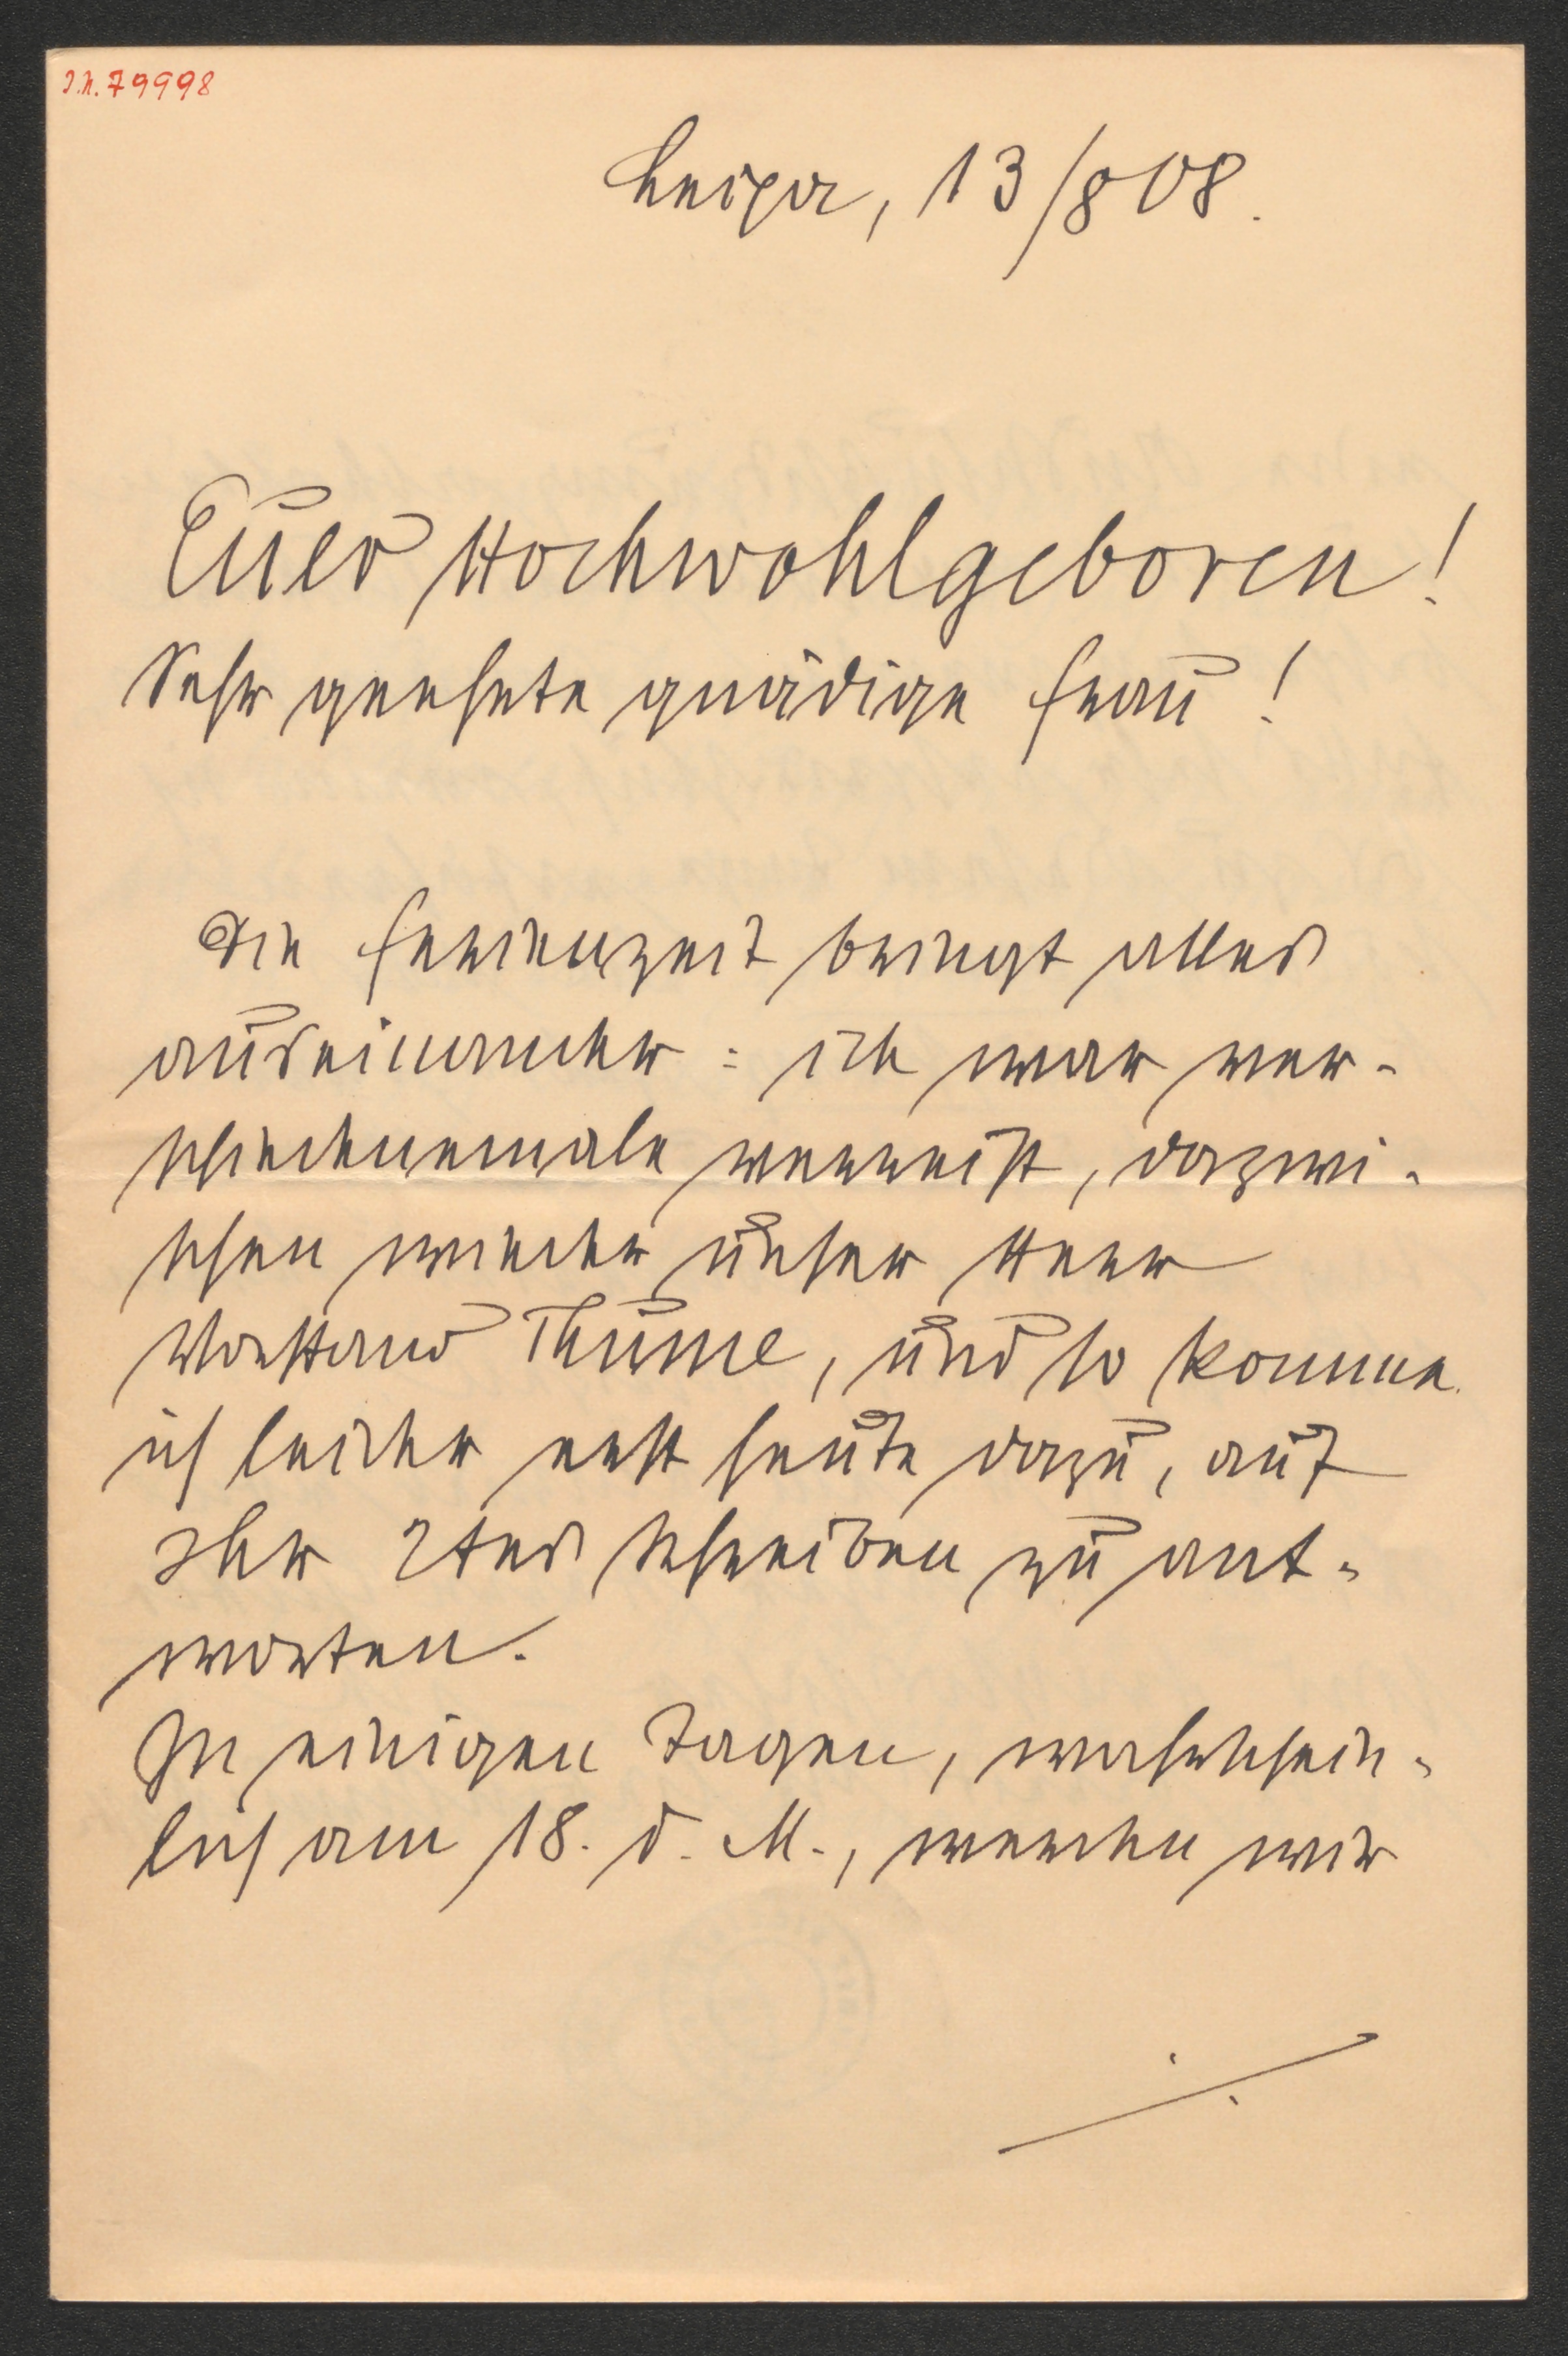 I.N. 79998
Leipa, 13/8 08.
Euer Hochwohlgeboren!
Sehr geehrte gnädige Frau!
Die Ferienzeit bringt alles
auseinander: ich war ver-
schiedenemale verreist, dazwi-
schen wieder unser Herr
Vorstand Thume, und so komme
ich leider erst heute dazu, auf
Ihr 2tes Schreiben zu ant-
worten.
In einigen Tagen, wahrschein-
lich am 18. d. M., werden wir